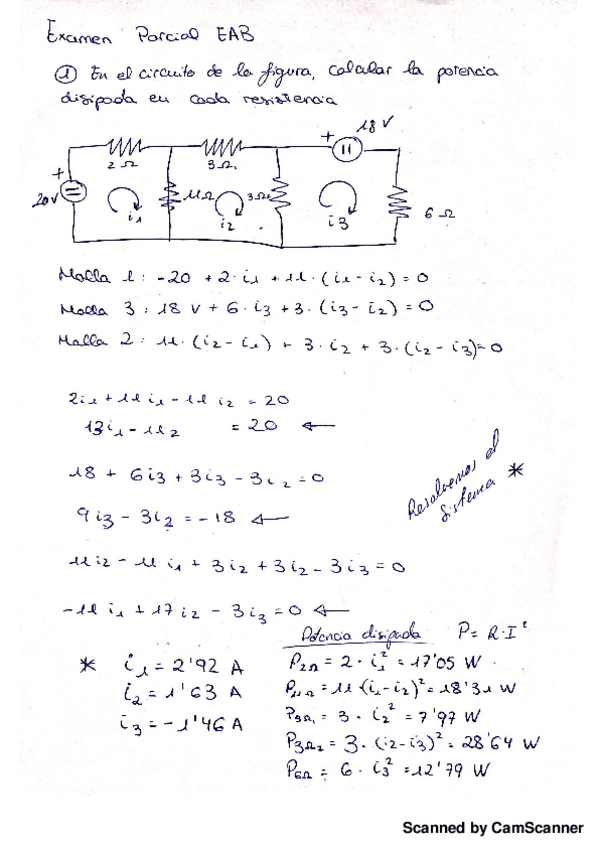 Examen Parcial EAB
① En el circuito de la figura, calcular la potencia
disipada en cada resistencia
+ 18 V
2 Ω 3 Ω1
+ 20V 11Ω 3Ω2 6 Ω
i1 i2 i3
Malla 1: -20 + 2·i1 + 11·(i1 - i2) = 0
Malla 3: 18 V + 6·i3 + 3·(i3 - i2) = 0
Malla 2: 11·(i2 - i1) + 3·i2 + 3·(i2 - i3) = 0
2i1 + 11i1 - 11i2 = 20
13i1 - 11i2 = 20 ←
18 + 6i3 + 3i3 - 3i2 = 0
9i3 - 3i2 = -18 ←
Resolvemos el
sistema *
11i2 - 11i1 + 3i2 + 3i2 - 3i3 = 0
-11i1 + 17i2 - 3i3 = 0 ←
Potencia disipada P = R·I²
* i1 = 2'92 A
i2 = 1'63 A
i3 = -1'46 A
P2Ω = 2·i1² = 17'05 W
P11Ω = 11·(i1-i2)² = 18'31 W
P3Ω1 = 3·i2² = 7'97 W
P3Ω2 = 3·(i2-i3)² = 28'64 W
P6Ω = 6·i3² = 12'79 W
Scanned by CamScanner